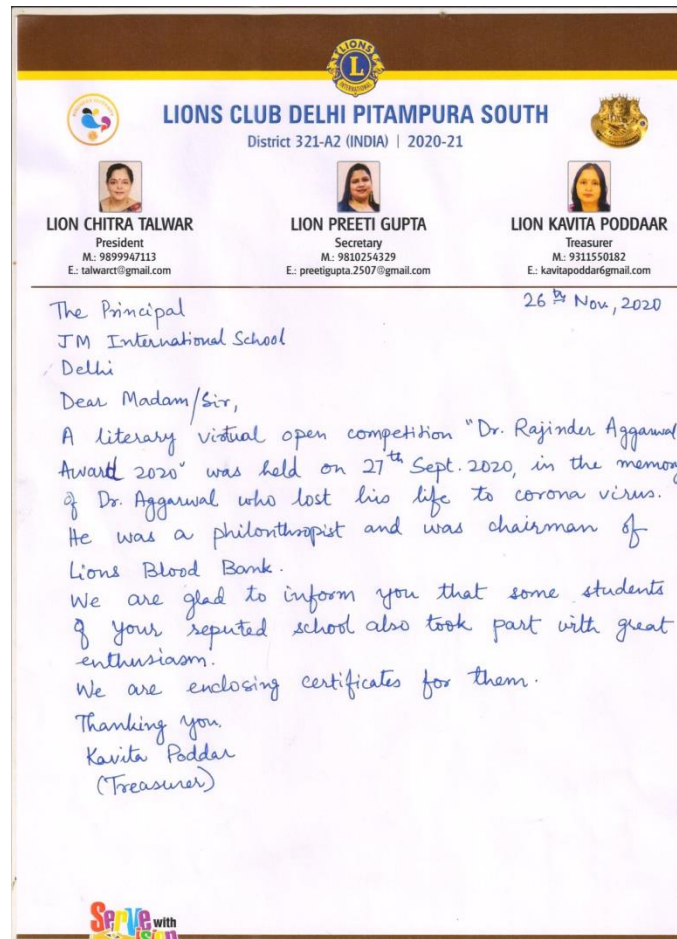 LIONS
L
INTERNATIONAL
LIONS CLUB DELHI PITAMPURA SOUTH
District 321-A2 (INDIA) | 2020-21
LION CHITRA TALWAR
President
M.: 9899947113
E.: talwarct@gmail.com
LION PREETI GUPTA
Secretary
M.: 9810254329
E.: preetigupta.2507@gmail.com
LION KAVITA PODDAAR
Treasurer
M.: 9311550182
E.: kavitapoddar6gmail.com
26th Nov, 2020
The Principal
JM International School
Delhi
Dear Madam/Sir,
A literary virtual open competition "Dr. Rajinder Aggarwal
Award 2020" was held on 27th Sept. 2020, in the memory
of Dr. Aggarwal who lost his life to corona virus.
He was a philonthropist and was chairman of
Lions Blood Bank.
We are glad to inform you that some students
of your reputed school also took part with great
enthusiasm.
We are enclosing certificates for them.
Thanking you.
Kavita Poddar
(Treasurer)
Serve with